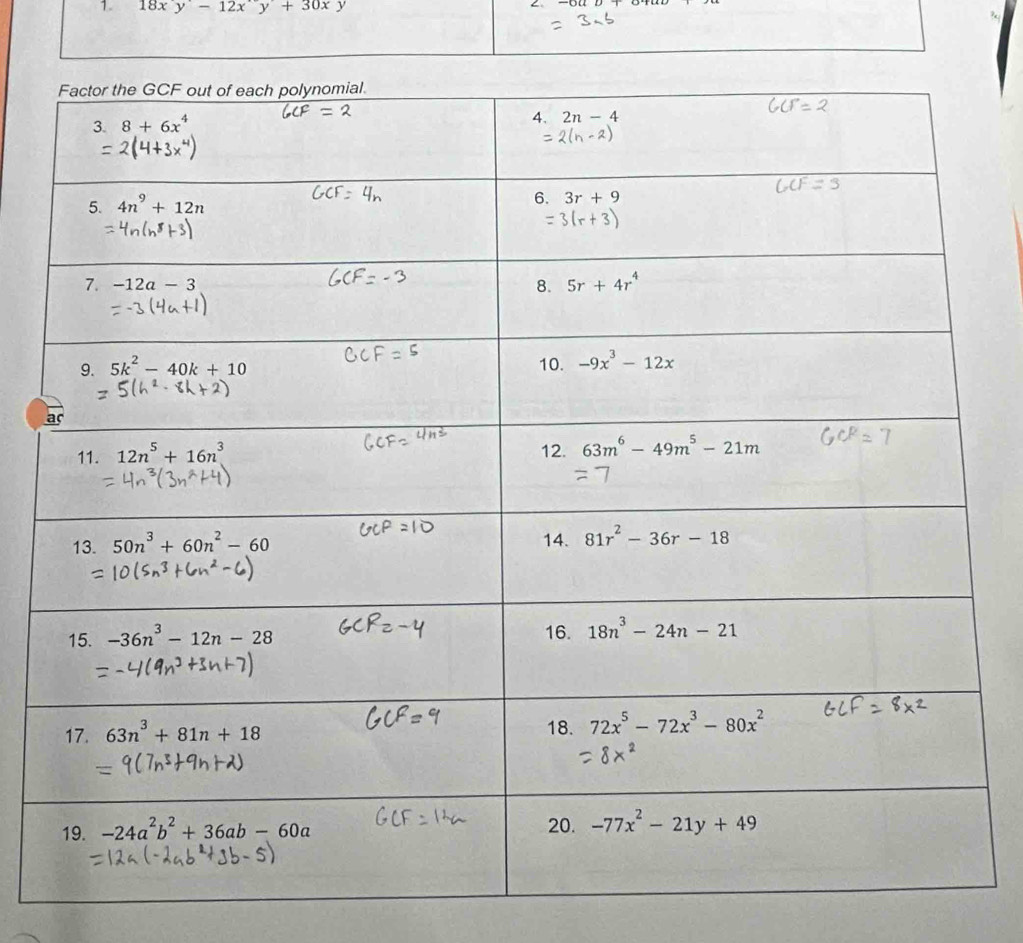 1. 18x y - 12x y + 30x y
2.
= 3ab
Factor the GCF out of each polynomial.
3. 8 + 6x⁴ GCF = 2
= 2(4+3x⁴)
4. 2n - 4 GCF = 2
= 2(n-2)
5. 4n⁹ + 12n GCF = 4n
= 4n(n⁸+3)
6. 3r + 9 GCF = 3
= 3(r+3)
7. -12a - 3 GCF = -3
= -3(4a+1)
8. 5r + 4r⁴
9. 5k² - 40k + 10 GCF = 5
= 5(k² - 8k + 2)
10. -9x³ - 12x
ac
11. 12n⁵ + 16n³ GCF = 4n³
= 4n³(3n²+4)
12. 63m⁶ - 49m⁵ - 21m GCF = 7
= 7
13. 50n³ + 60n² - 60 GCF = 10
= 10(5n³+6n²-6)
14. 81r² - 36r - 18
15. -36n³ - 12n - 28 GCF = -4
= -4(9n³+3n+7)
16. 18n³ - 24n - 21
17. 63n³ + 81n + 18 GCF = 9
= 9(7n³+9n+2)
18. 72x⁵ - 72x³ - 80x² GCF = 8x²
= 8x²
19. -24a²b² + 36ab - 60a GCF = 12a
= 12a(-2ab²+3b-5)
20. -77x² - 21y + 49